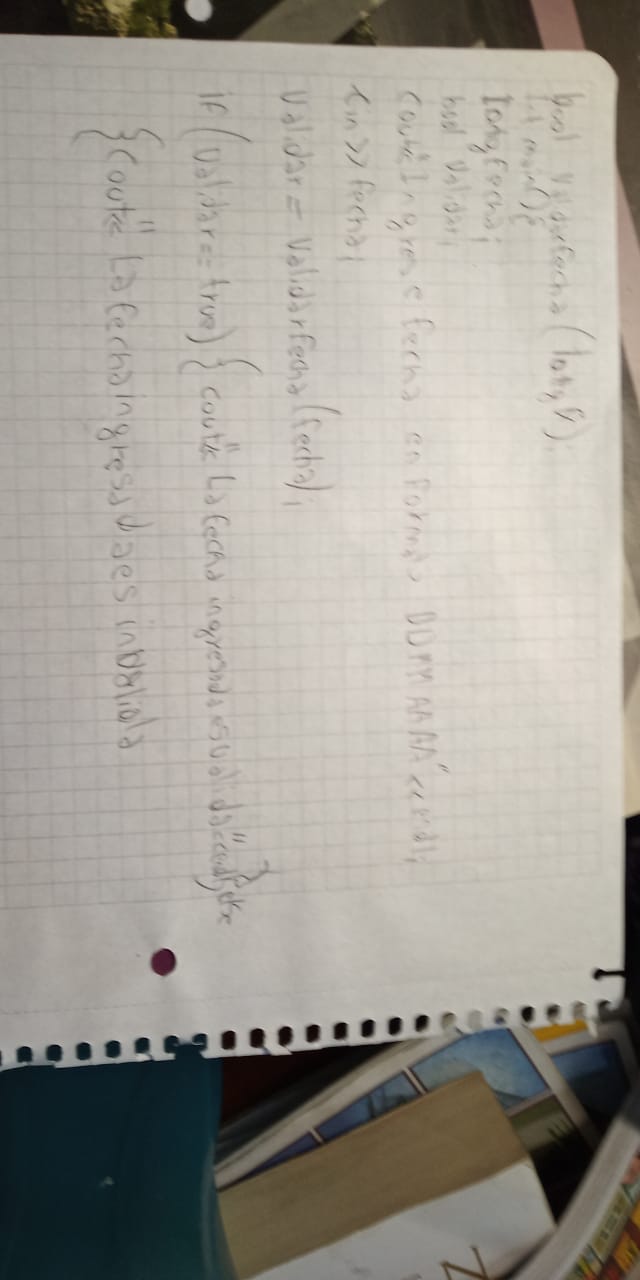 bool Validarfecha (long f);
int main(){
long fecha;
bool Validar;
cout<<"Ingrese fecha en formato DDMMAAAA"<<endl;
cin>>fecha;
Validar = Validarfecha(fecha);
if (Validar== true) { cout<<"La fecha ingresada es valida"<<endl;} else
{cout<<"La fecha ingresada es invalida
N